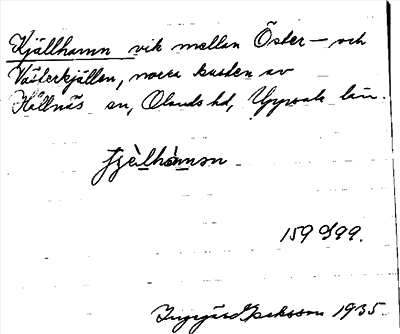 Kjällhamn vik mellan Öster– och
Västerkjällen, norra kusten av
Hållnäs sn, Olands hd, Uppsala län.
159 099.
Ingegärd Isaksson 1935.